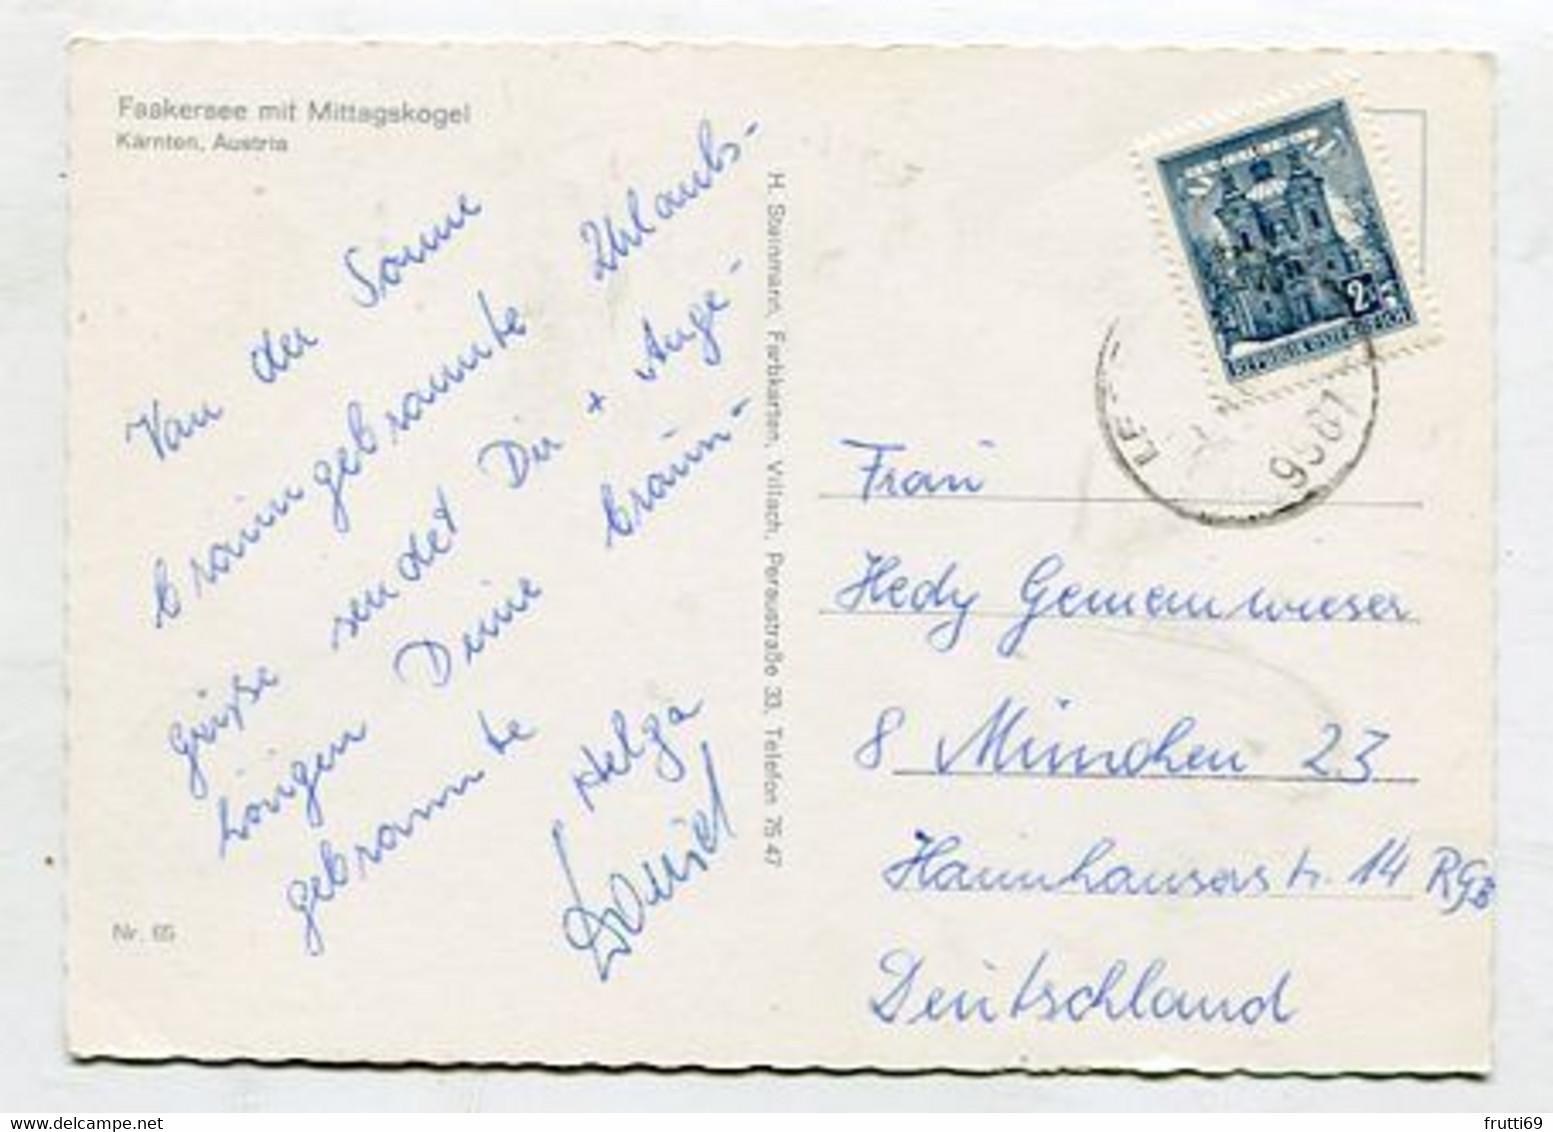 Faakersee mit Mittagskogel
Kärnten, Austria
Von der Sonne
braungebrannte Urlaubs-
grüße sendet Dir + Ange-
hörigen Deine braun-
gebrannte Helga
Daniel
Nr. 65
H. Steinmann, Farbkarten, Villach, Peraustraße 33, Telefon 75 47
2.-S
REPUBLIK ÖSTERREICH
9581
Frau
Hedy Gemeinwieser
8 München 23
Hannhauserstr. 14 RGB
Deutschland
frutti69